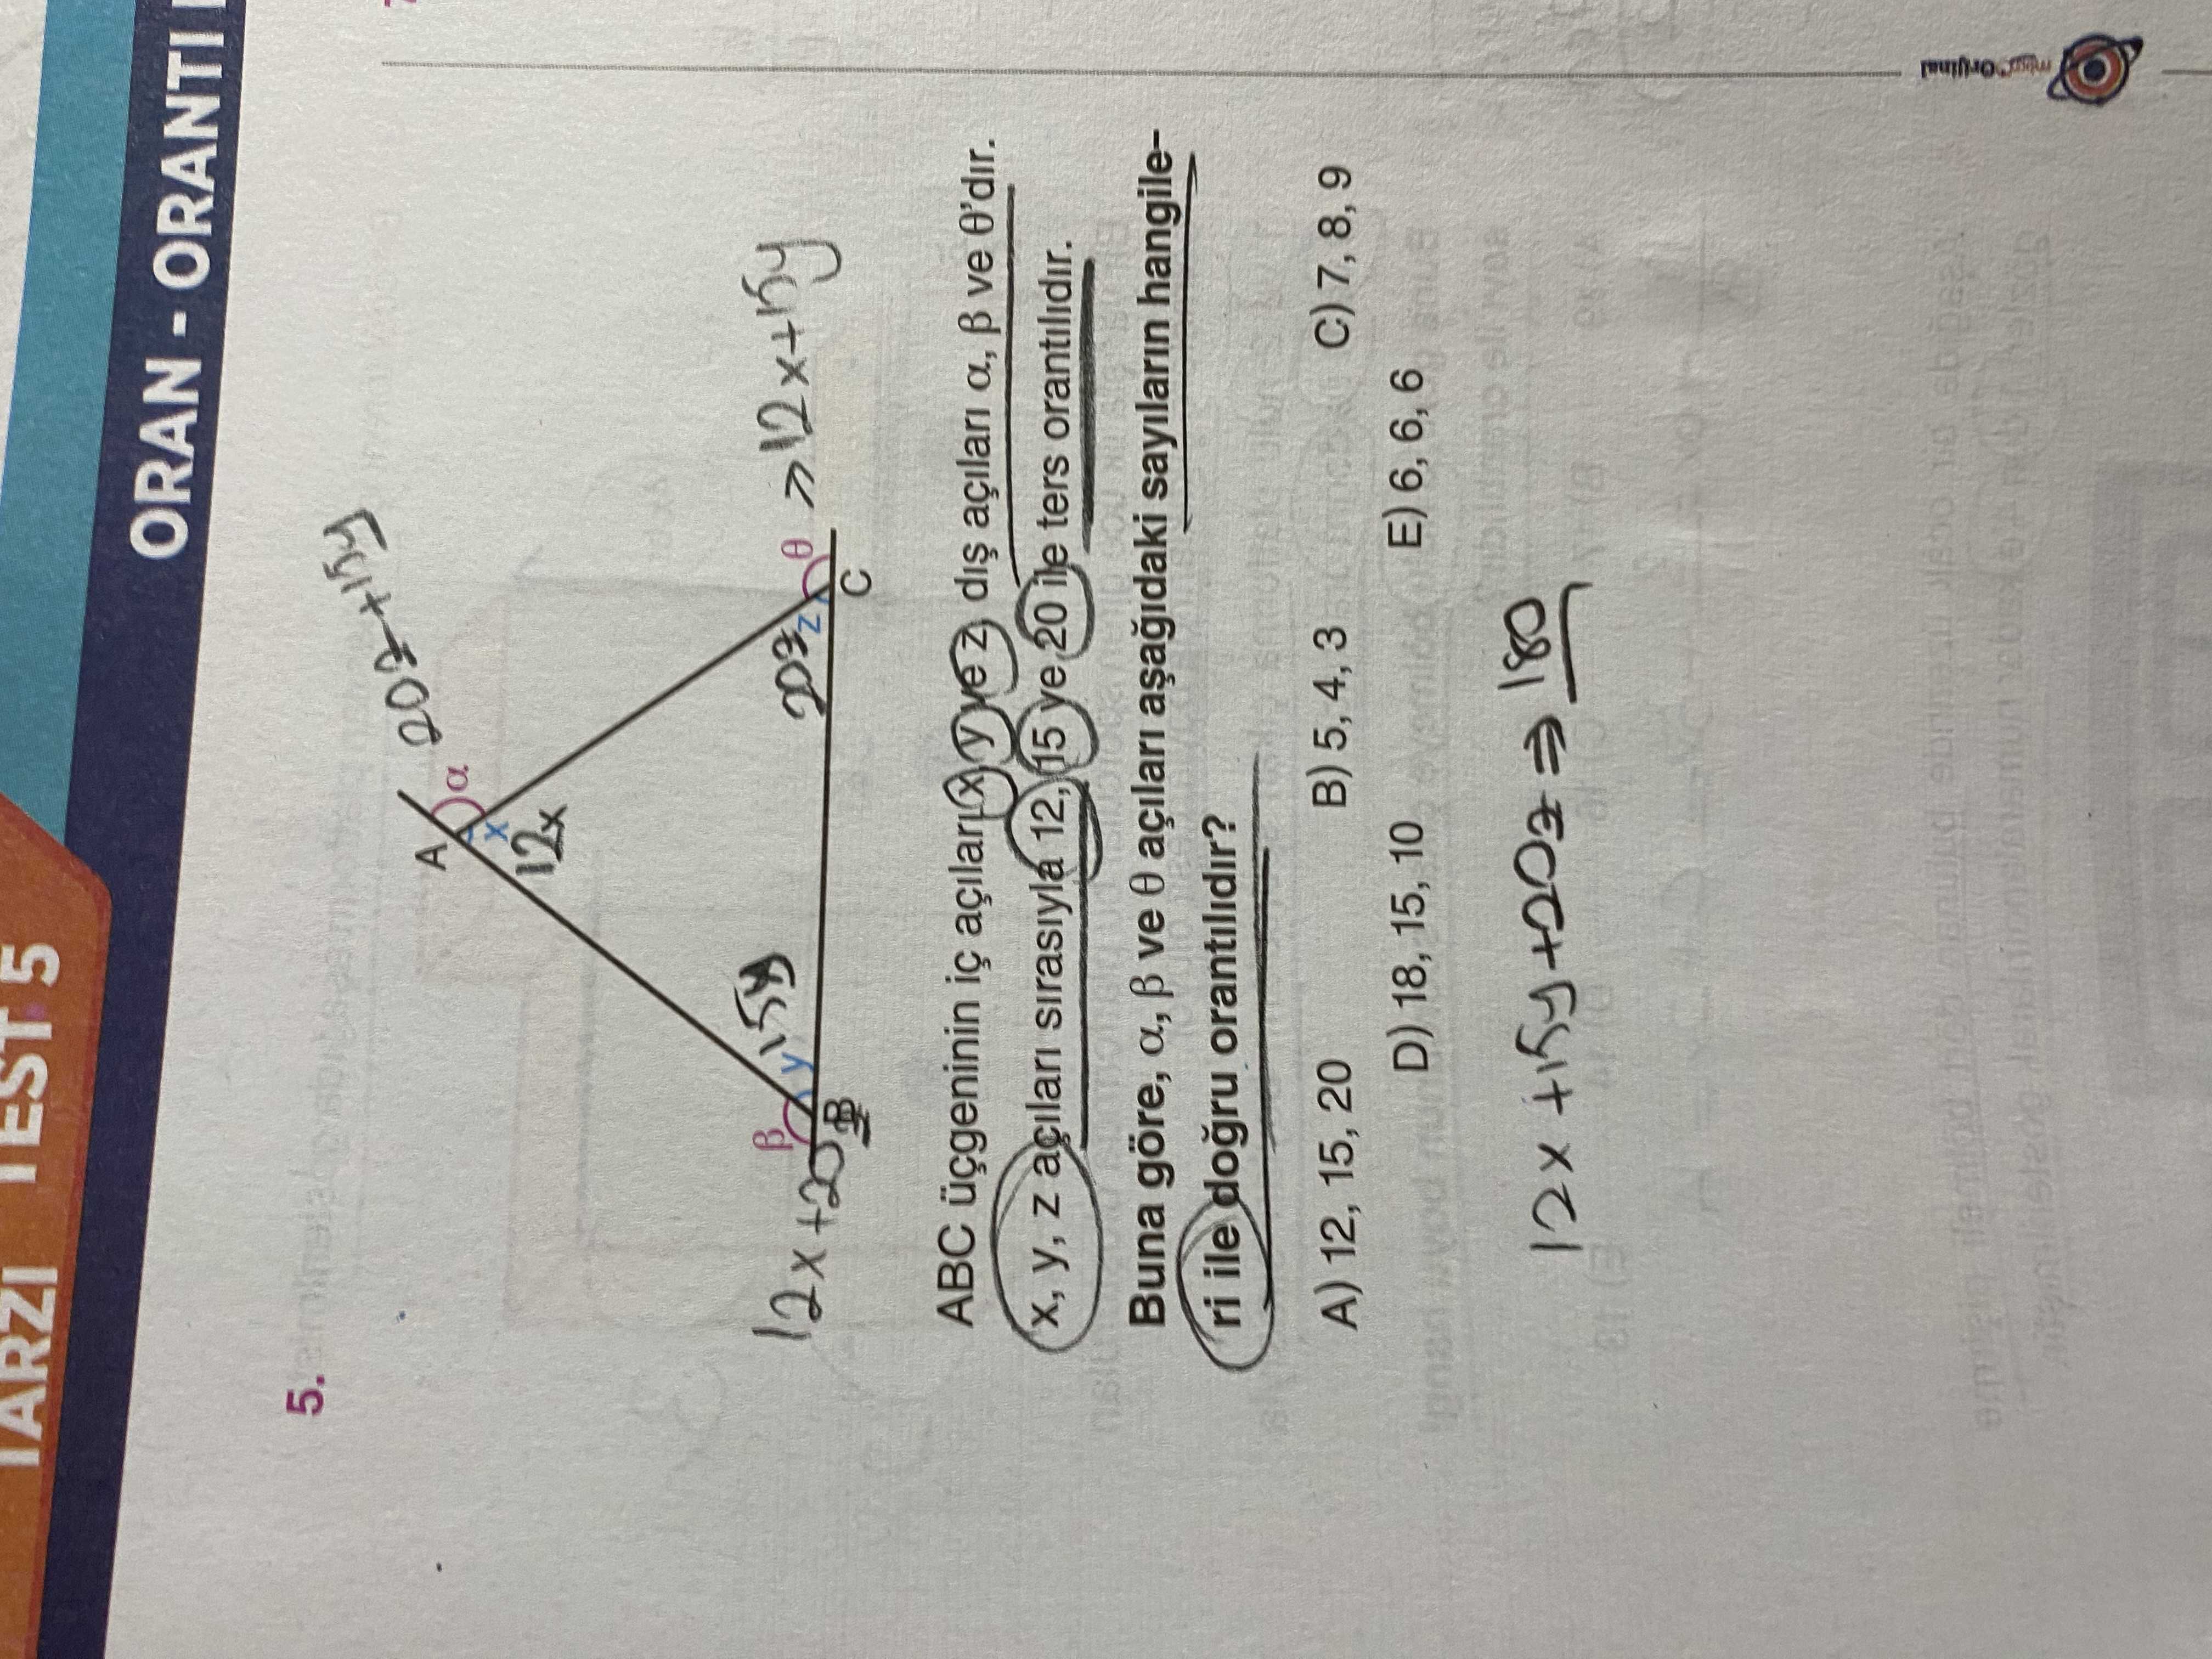 TARZI TEST 5
ORAN - ORANTI
5.
20z+15y
A
α
x
12x
12x+20
β
B
y
15y
20z
z
θ
C
⇒ 12x+15y
ABC üçgeninin iç açıları x, y ve z, dış açıları α, β ve θ'dır.
x, y, z açıları sırasıyla 12, 15 ve 20 ile ters orantılıdır.
Buna göre, α, β ve θ açıları aşağıdaki sayıların hangile-
ri ile doğru orantılıdır?
A) 12, 15, 20 B) 5, 4, 3 C) 7, 8, 9
D) 18, 15, 10 E) 6, 6, 6
12x+15y+20z = 180
Orijinal